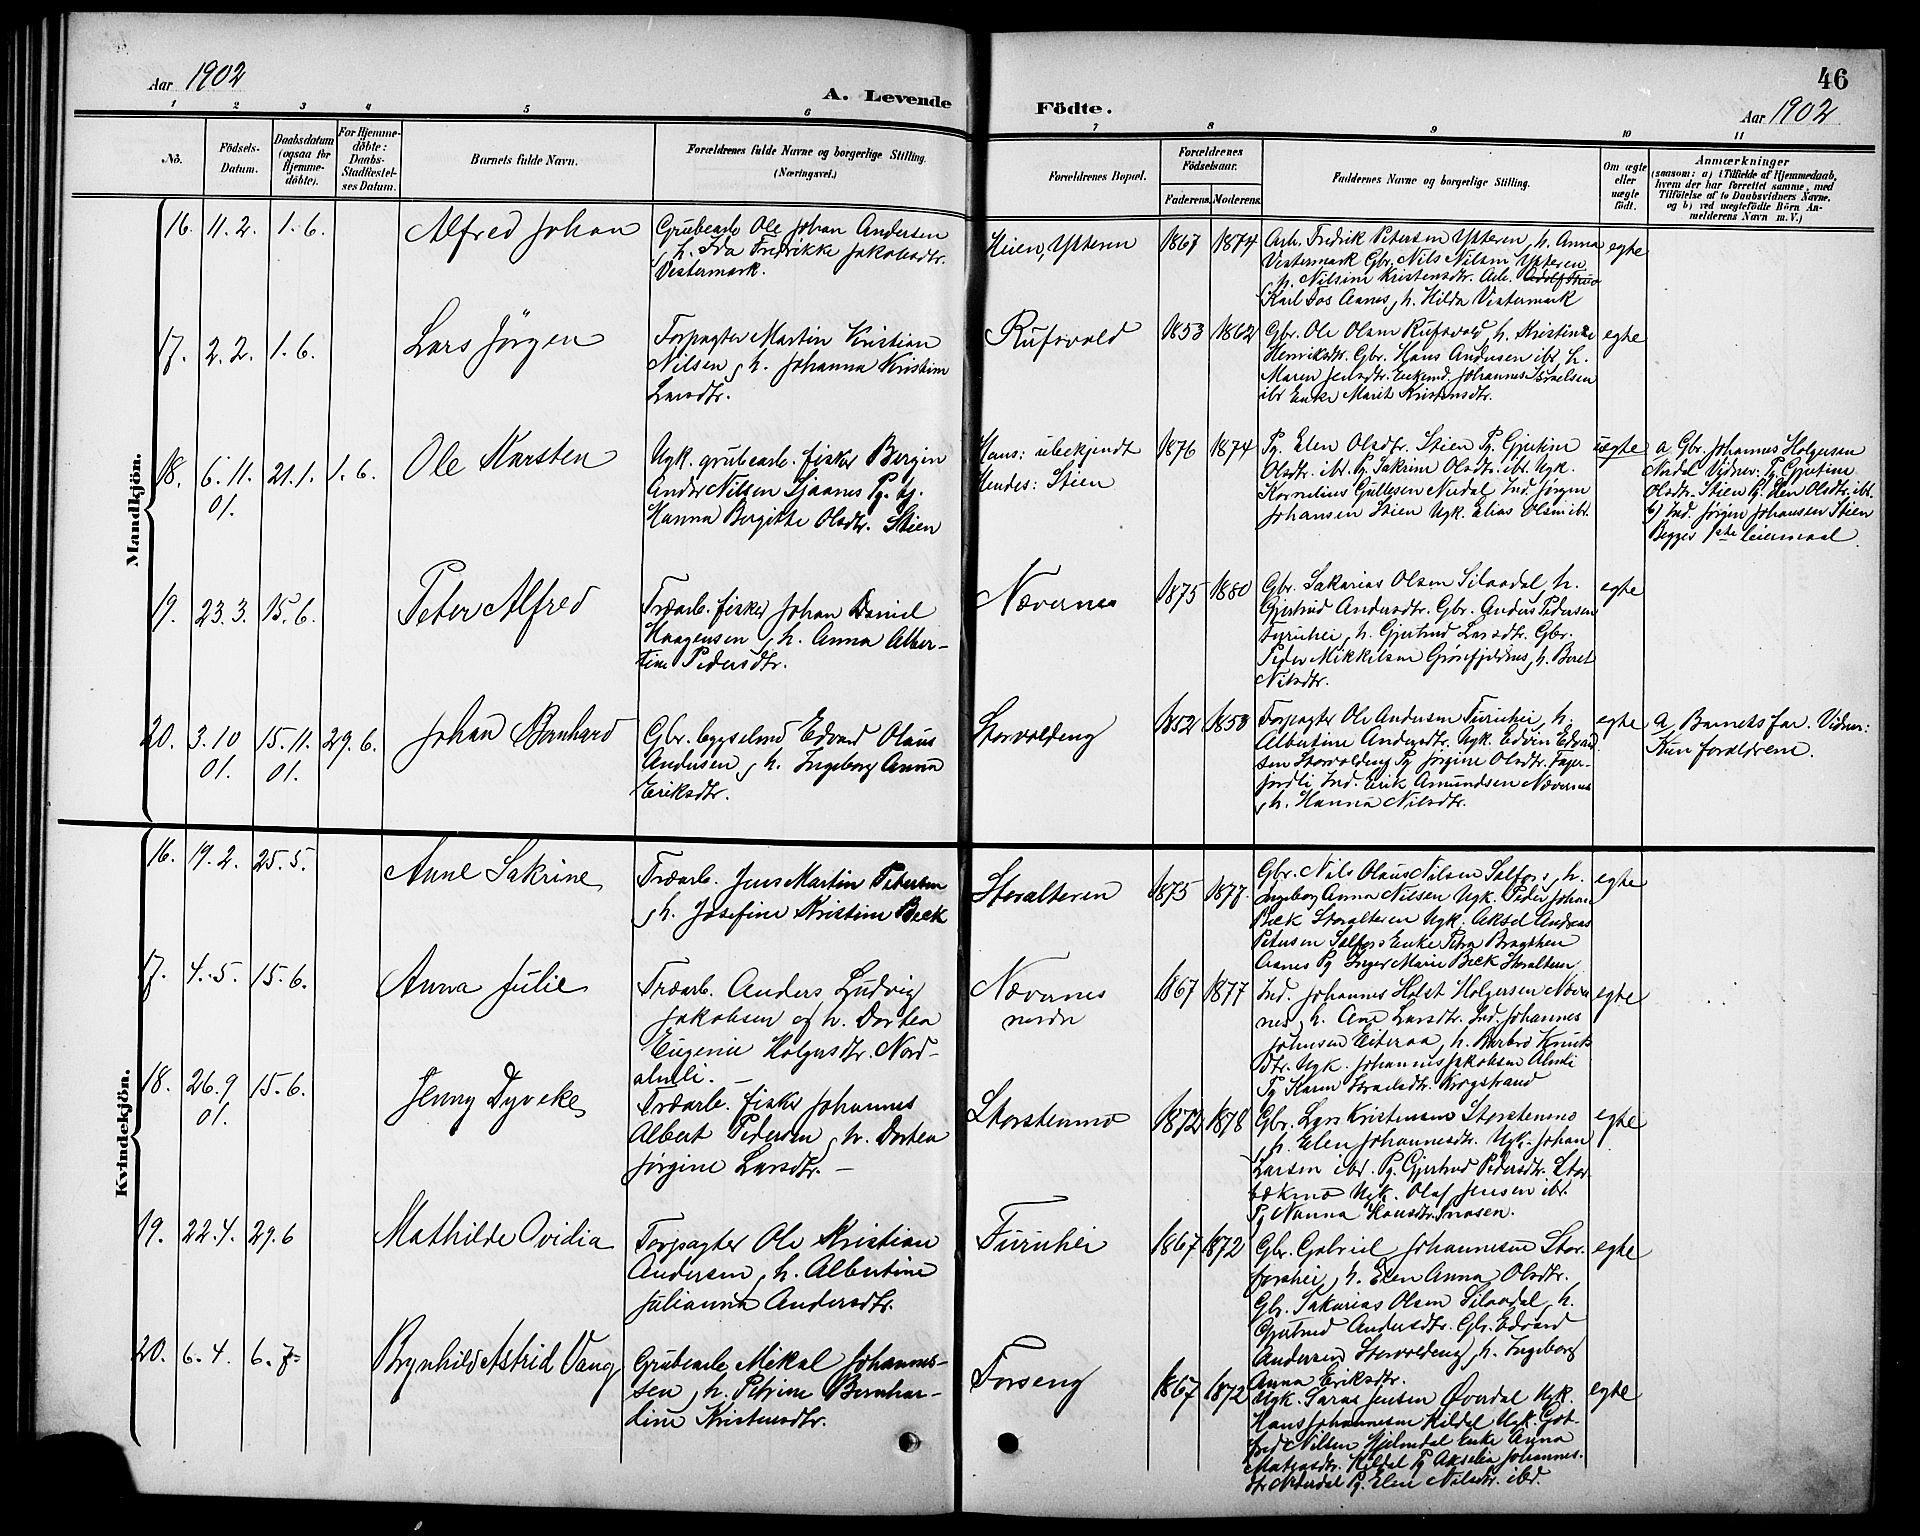 Aar 1902
A. Levende
Födte.
46
Aar 1902
1 2 3 4 5 6 7 8 9 10 11
No.
Födsels-
Datum.
Daabsdatum
(ogsaa for
Hjemme-
döbte).
For Hjemme-
döbte:
Daabs-
Stadfæstel-
ses Datum.
Barnets fulde Navn.
Forældrenes fulde Navne og borgerlige Stilling.
(Næringsvei.)
Forældrenes Bopæl.
Forældrenes
Födselsaar.
Faderens. Moderens.
Faddernes Navne og borgerlige Stilling.
Om ægte
eller
uægte
født.
Anmærkninger
(saasom: a) i Tilfælde af Hjemmedaab,
hvem der har forrettet samme, med
Tilföielse af to Daabsvidners Navne,
og b) ved uægtefødte Börn An-
melderens Navn m. V.)
Mandkjön.
16. 11.2. 1.6.
Alfred Johan
Grubearb. Ole Johan Andersen
h. Ida Fredrikke Jakobsdtr.
Vestermark.
Heien, Ytteren
1867 1874
Arb. Fredrik Petersen Ytteren, h. Anna
Vestermark Gbr. Nils Nilsen Ytteren
h. Nilsine Kristensdtr. Arb.
Karl Fos Aanes, h. Hilda Vestermark
egte
17. 2.2. 1.6.
Lars Jörgen
Forpagter Martin Kristian
Nilsen, h. Johanna Kristine
Larsdtr.
Rufsvold
1853 1862
Gbr. Ole Olsen Rufsvold, h. Kristine
Henriksdtr. Gbr. Hans Andersen ibr, h.
Maren Jensdtr. Enkemd. Johannes Israelsen
ibr Enke Marit Kristensdtr.
egte
18. 6.11. 01. 21.1. 1.6.
Ole Karsten
Ugk. grubearb. fisker Bergin
Ander Nilsen Sjaanes Pg. tj.
Hanna Birgitte Olsdtr. Stien
Hans: ubekjendt
Hendes: Stien
1876 1874
Pg. Elen Olsdtr. Stien Pg. Gjertine
Olsdtr. ibr. Pg. Sakrine Olsdtr. ibr. Ugk.
Kornelius Gullesen Nerdal Ind. Jörgen
Johansen Stien Ugk. Elias Olsen ibr.
uegte
a Gbr. Johannes Holgersen
Nordal Vidner: Pg. Gjertine
Olsdtr. Stien Pg. Elen Olsdtr. ibr.
b) Ind. Jörgen Johansen Stien
Begges 1ste leiermaal.
19. 23.3. 15.6.
Peter Alfred
Træarb. fisker Johan Daniel
Haagensen, h. Anna Alber-
tine Pedersdtr.
Nævernes
1875 1880
Gbr. Sakarias Olsen Silaadal, h.
Gjertrud Andersdtr. Gbr. Anders Pedersen
Furuhei, h. Gjertrud Larsdtr. Gbr.
Peder Mikkelsen Grönfjeldnes, h. Beret
Nilsdtr.
egte
20. 3.10 01. 15.11. 01. 29.6.
Johan Bernhard
Gbr. bygselmd Edvard Olaus
Andersen, h. Ingeborg Anna
Eriksdtr.
Storvoldeng
1852 1853
Forpagter Ole Andersen Furuhei, h.
Albertine Andersdtr. Ugk. Edvin Edvard
sen Storvoldeng Pg Jörgine Olsdtr. Fager-
jordli Ind. Erik Amundsen Nævernes
, h. Hanna Nilsdtr.
egte
a Barnets far. Vidner:
Kun forældrene.
Kvindekjön.
16. 19.2. 25.5.
Anne Sakrine
Træarb. Jens Martin Petersen
, h. Josefine Kristine Beck
Storalteren
1875 1877.
Gbr. Nils Olaus Nilsen Selfors, h.
Ingeborg Anna Nilsen Ugk. Peder Johan
Beck Storalteren Ugk. Aksel Andreas
Petersen Selfors Enke Petra Bragthen
Aanes Pg Inger Marie Beck Storalteren
egte
17. 4.5. 15.6.
Anna Julie
Træarb. Anders Ludvig
Jakobsen og h. Dortea
Eugenie Holgersdtr. Nord-
almli. —
Nævernes
1867 1877
Ind. Johannes Holst Holgersen Næver
nes, h. Ane Larsdtr. Ind. Johannes
Johnsen Eiteraa, h. Barbro Knuts
dtr. Ugk. Johannes Jakobsen Almli
Pg Karen Israelsdtr. Krogstrand
egte
18. 26.9 01. 15.6.
Jenny Dyveke
Træarb. fisker Johannes
Albert Pedersen, h. Dortea
Jörgine Larsdtr. —
Storstenmo
1872 1878
Gbr. Lars Kristensen Storstenmo
, h. Elen Johannesdtr. Ugk. Johan
Larsen ibr. Pg. Gjertrud Pedersdtr. Stor
bækmo Ugk. Olaf Jensen ibr.
Pg Nanna Hansdtr. Snasen.
egte
19. 22.4. 29.6
Mathilde Ovidia
Forpagter Ole Kristian
Andersen, h. Albertine
Julianna Andersdtr.
Furuhei
1867 1872
Gbr. Gabriel Johannesen Stor-
forshei, h. Elen Anna Olsdtr.
Gbr. Sakarias Olsen Silaadal, h.
Gjertrud Andersdtr. Gbr. Edvard
Andersen Storvoldeng, h. Ingeborg
Anna Eriksdtr.
egte
20. 6.4. 6.7.
Brynhild Astrid Vang
Grubearb Mikal Johannes-
sen, h. Petrine Bernhar-
dine Kristensdtr.
Forseng
1867 1872
Ugk. Saras Jensen Överdal Ugk.
Hans Johannesen Kildal Ugk. Got-
fred Nilsen Hjelmdal Enke Anna
Matiasdtr. Kildal Pg Akselia Johannes-
dtr Nederdal Pg. Elen Nilsdtr. ibd.
egte